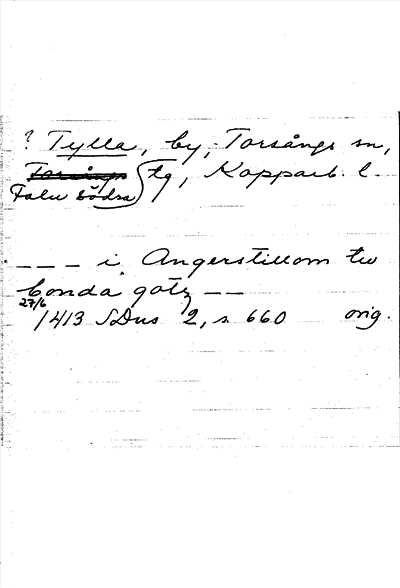 ? Tylla, by, Torsångs sn,
Falu södra tg, Kopparb. l.
--- i Angerstillom tw
bonda gotz --
27/6
1413 SDns 2, s. 660 orig.